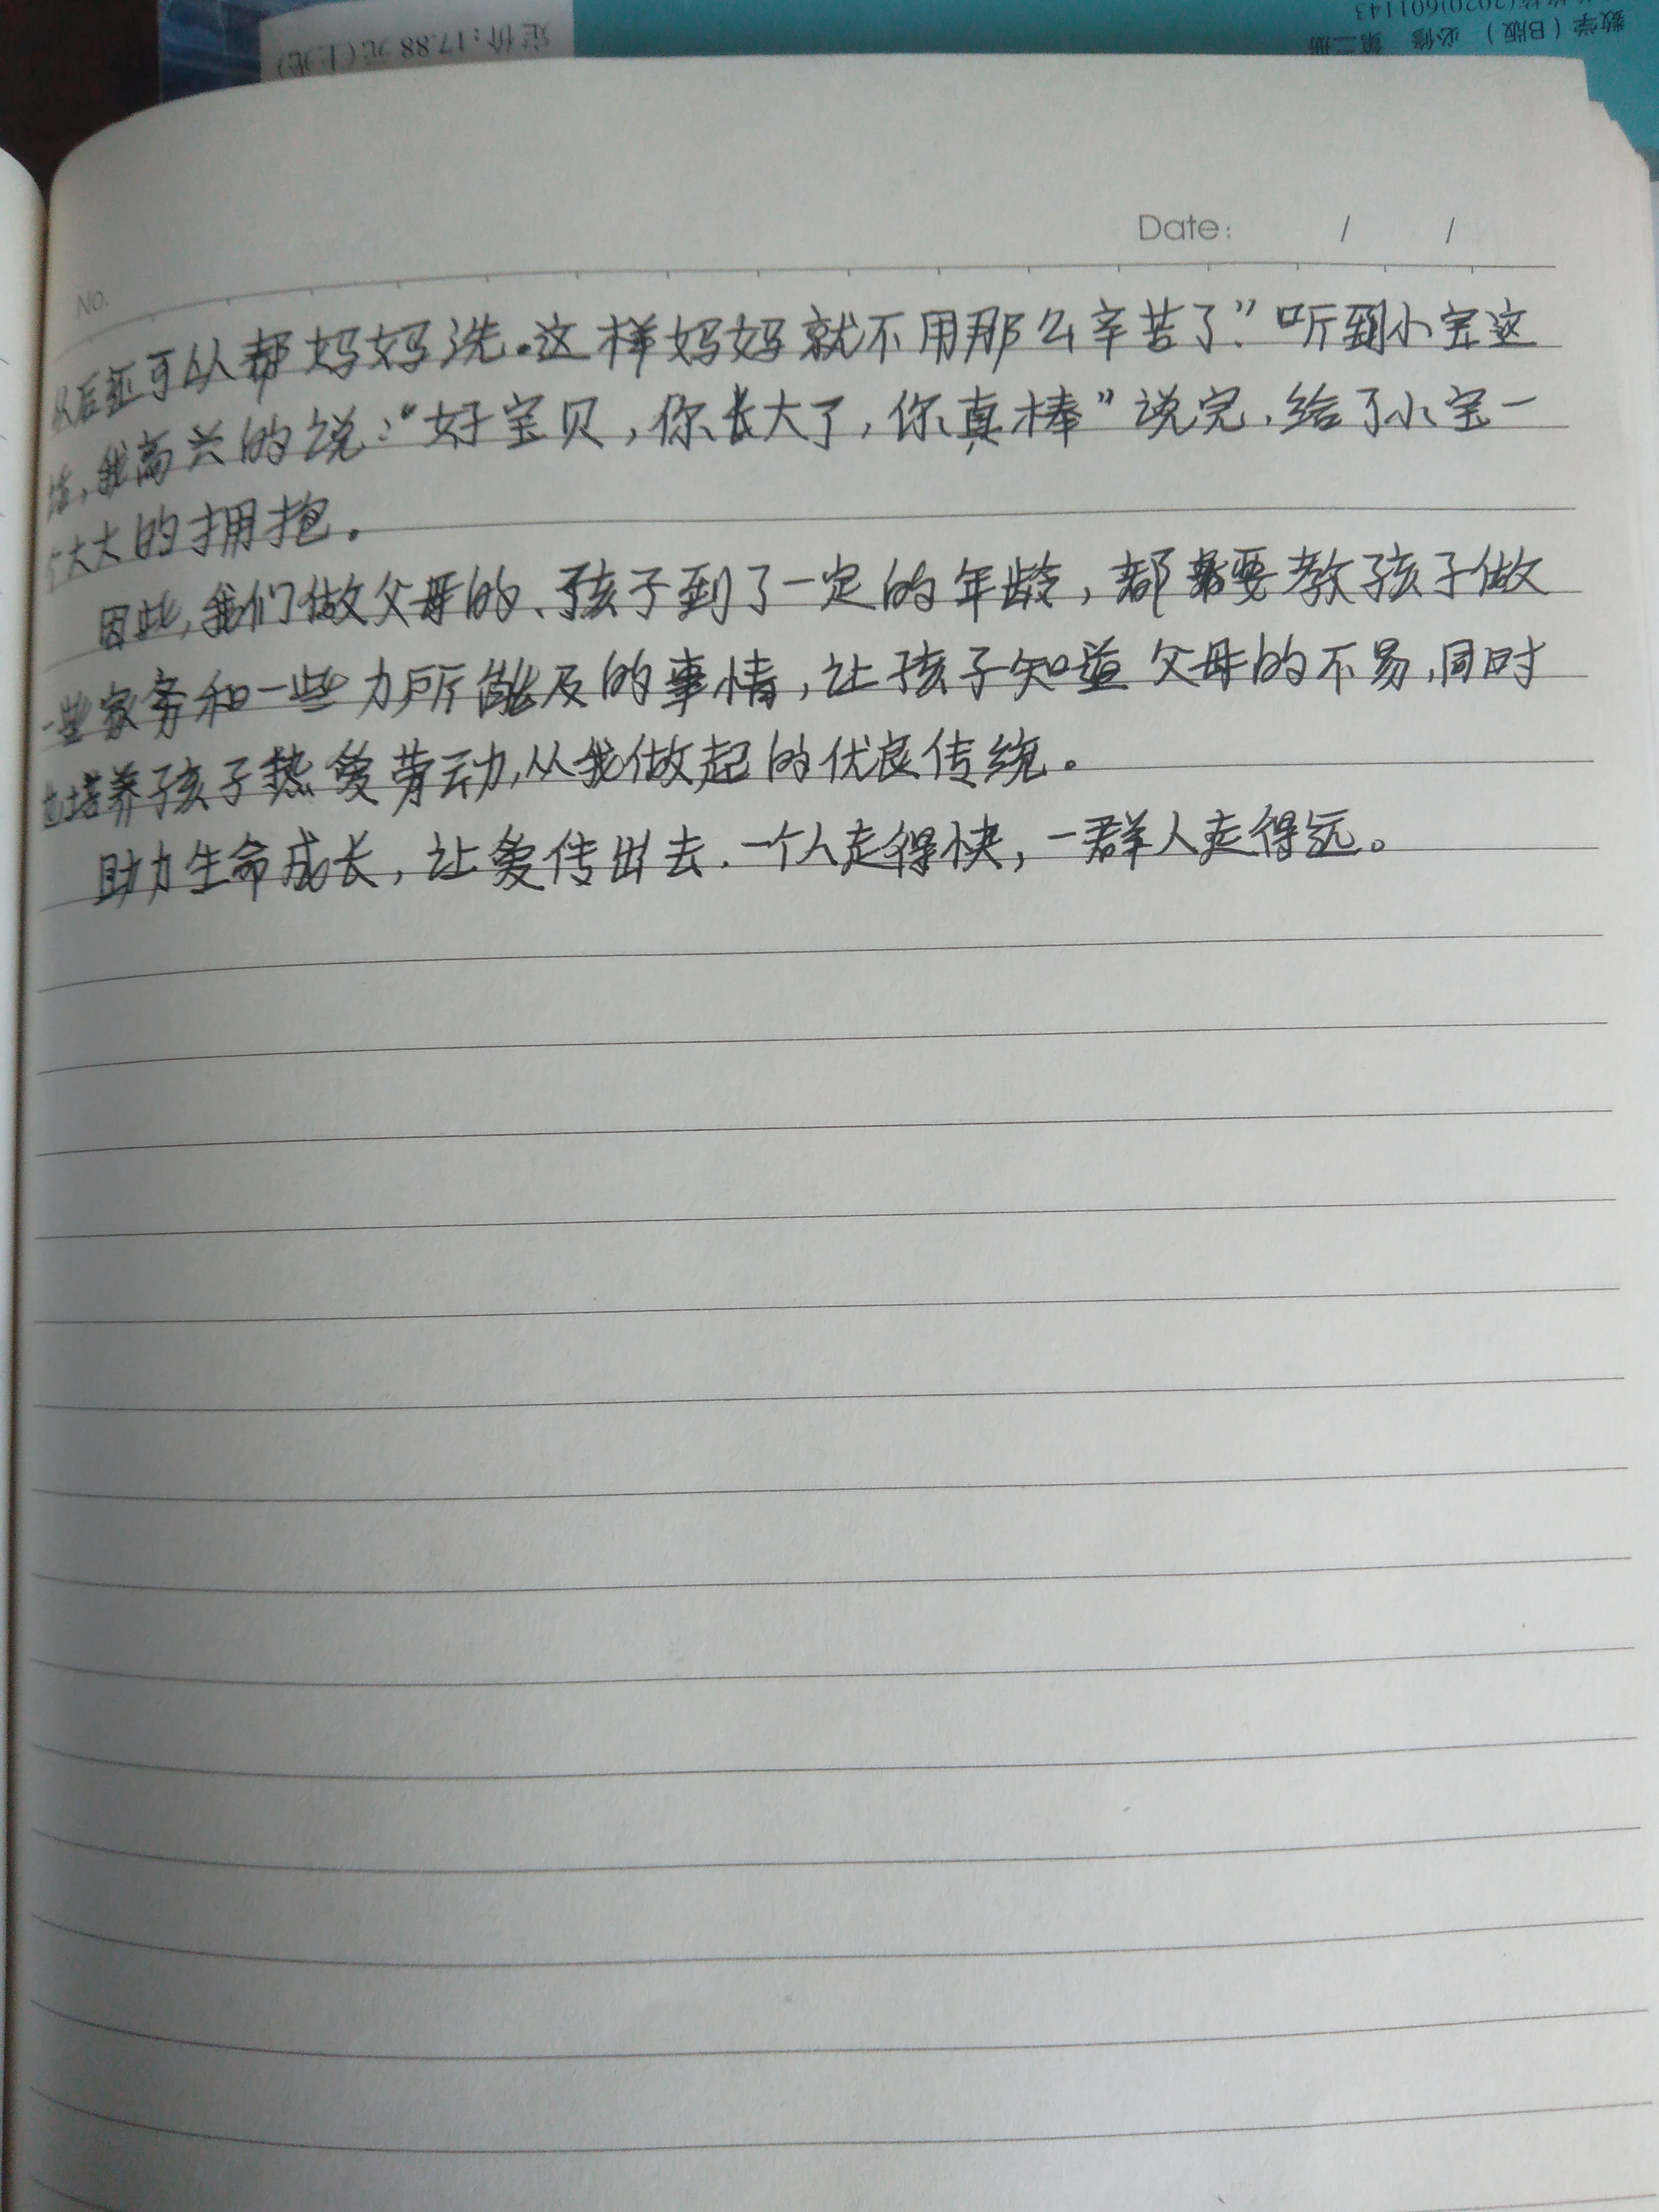 定价：17.88元（上光）
数学（B版） 必修 第二册
(2020)601143
Date: / /
No.
以后还可以帮妈妈洗。这样妈妈就不用那么辛苦了”听到小宝这
话，我高兴的说：“好宝贝，你长大了，你真棒”说完，给了小宝一
个大大的拥抱。
因此，我们做父母的、孩子到了一定的年龄，都需要教孩子做
一些家务和一些力所能及的事情，让孩子知道父母的不易，同时
也培养孩子热爱劳动，从我做起的优良传统。
助力生命成长，让爱传出去．一个人走得快，一群人走得远。